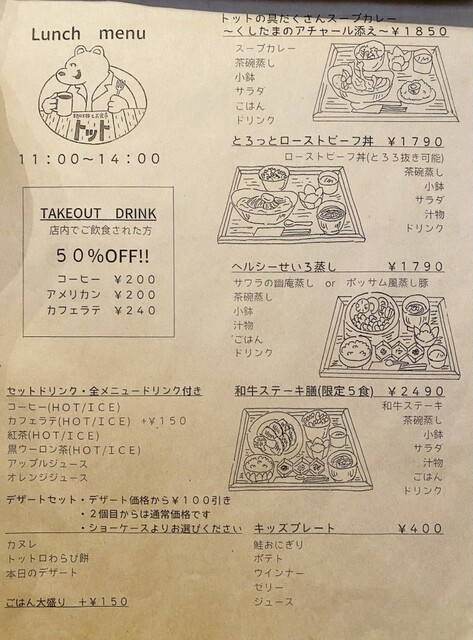 Lunch menu
トット
11:00～14:00
TAKEOUT DRINK
店内でご飲食された方
50%OFF!!
コーヒー ￥200
アメリカン ￥200
カフェラテ ￥240
セットドリンク・全メニュードリンク付き
コーヒー(HOT/ICE)
カフェラテ(HOT/ICE) +￥150
紅茶(HOT/ICE)
黒ウーロン茶(HOT/ICE)
アップルジュース
オレンジジュース
デザートセット・デザート価格から￥100引き
・2個目からは通常価格です
・ショーケースよりお選びください
カヌレ
トットロわらび餅
本日のデザート
ごはん大盛り +￥150
トットの具だくさんスープカレー
～くしたまのアチャール添え～￥1850
スープカレー
茶碗蒸し
小鉢
サラダ
ごはん
ドリンク
とろっとローストビーフ丼 ￥1790
ローストビーフ丼(とろろ抜き可能)
茶碗蒸し
小鉢
サラダ
汁物
ドリンク
ヘルシーせいろ蒸し ￥1790
サワラの幽庵蒸し or ポッサム風蒸し豚
茶碗蒸し
小鉢
汁物
ごはん
ドリンク
和牛ステーキ膳(限定5食) ￥2490
和牛ステーキ
茶碗蒸し
小鉢
サラダ
汁物
ごはん
ドリンク
キッズプレート ￥400
鮭おにぎり
ポテト
ウインナー
ゼリー
ジュース